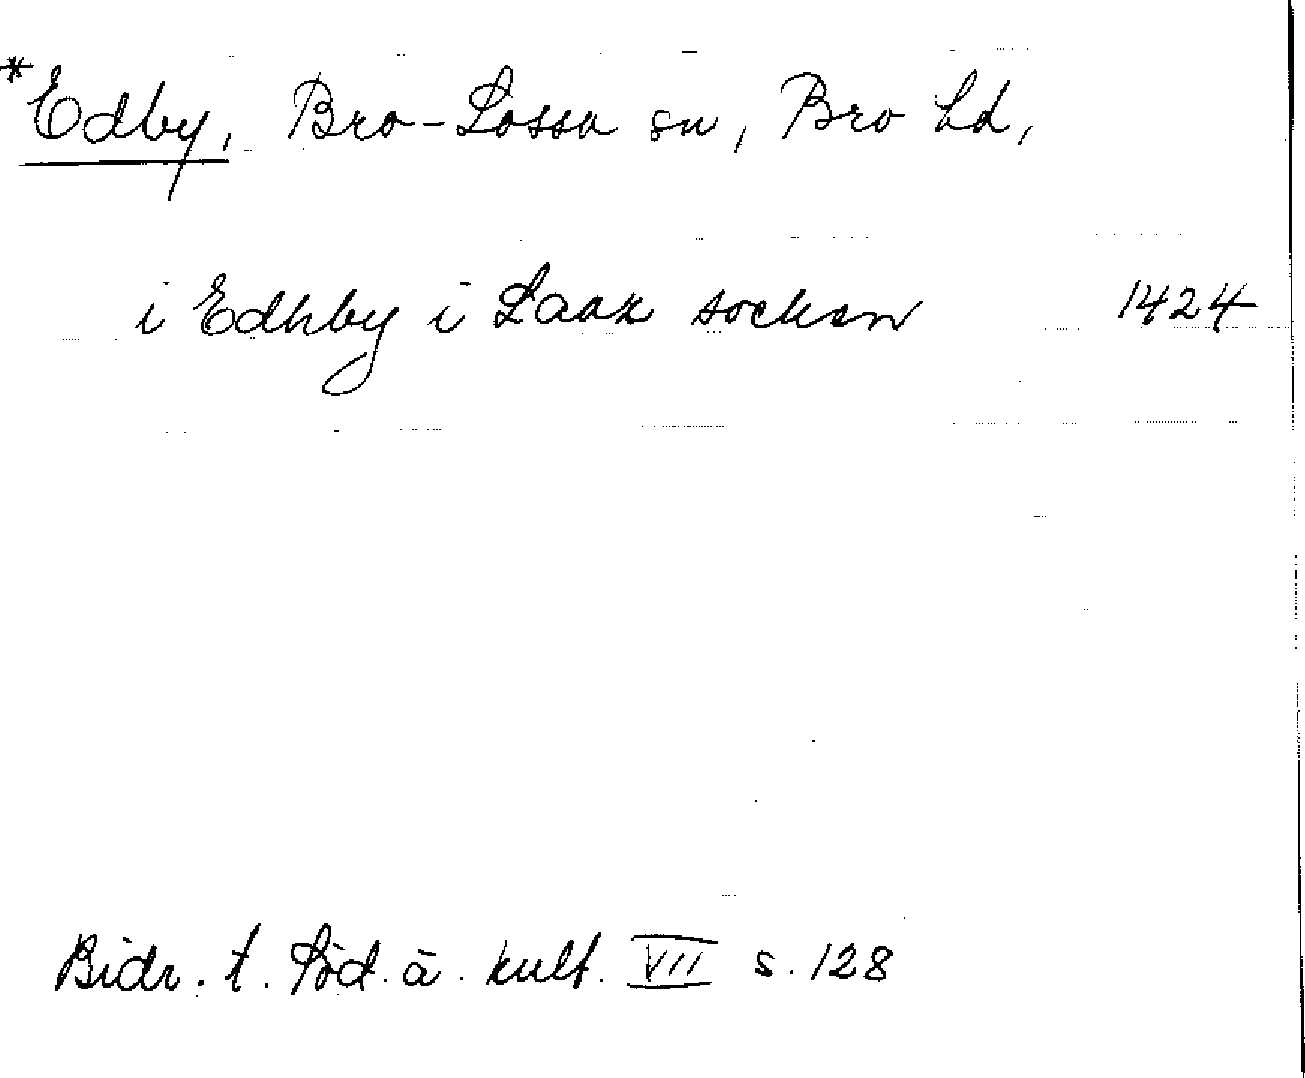 *Edby, Bro-Lossa sn, Bro hd,
i Edhby i Laax socken 1424
Bidr. t. Söd. ä. kult. VII s. 128